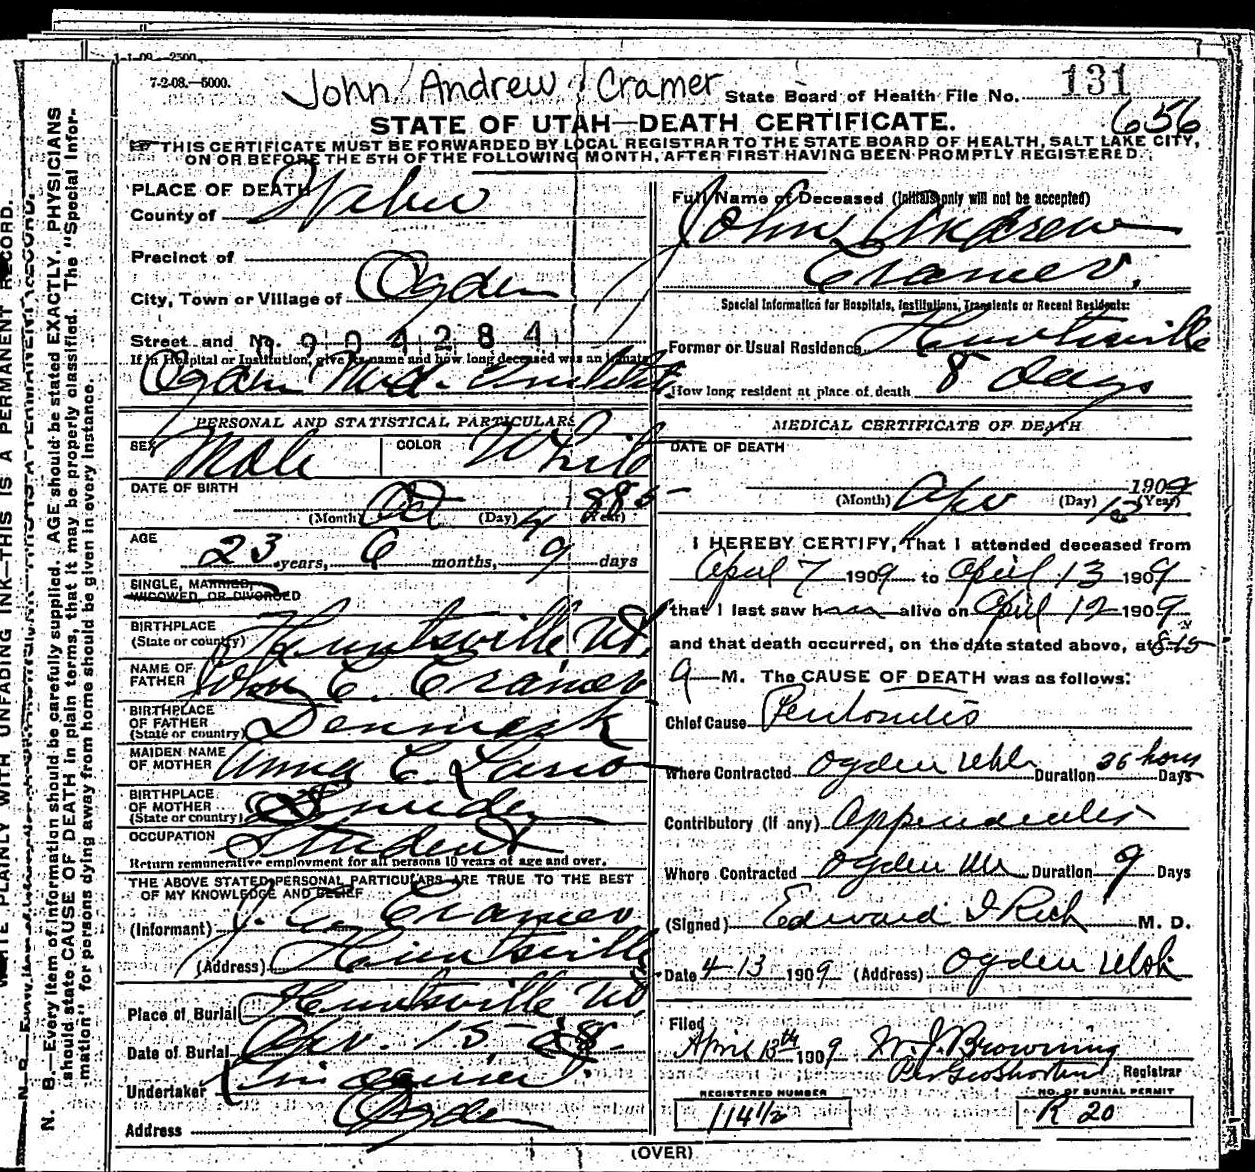 1-1-09.—2500.
7-2-08.—5000.
John Andrew Cramer
State Board of Health File No. 131
656
STATE OF UTAH—DEATH CERTIFICATE.
THIS CERTIFICATE MUST BE FORWARDED BY LOCAL REGISTRAR TO THE STATE BOARD OF HEALTH, SALT LAKE CITY,
ON OR BEFORE THE 5TH OF THE FOLLOWING MONTH, AFTER FIRST HAVING BEEN PROMPTLY REGISTERED.
PLACE OF DEATH
County of Weber
Precinct of
City, Town or Village of Ogden
Street and No. 904284
If in Hospital or Institution, give its name and how long deceased was an inmate
Ogden Med.
PERSONAL AND STATISTICAL PARTICULARS
SEX Male COLOR White
DATE OF BIRTH
(Month) Oct (Day) 4 (Year) 1885
AGE
23 years, 6 months, 9 days
SINGLE, MARRIED,
WIDOWED, OR DIVORCED
BIRTHPLACE
(State or country) Huntsville Ut.
NAME OF
FATHER John C. Cramer
BIRTHPLACE
OF FATHER
(State or country) Denmark
MAIDEN NAME
OF MOTHER Anna C.
BIRTHPLACE
OF MOTHER
(State or country) Sweden
OCCUPATION Student
Return remunerative employment for all persons 10 years of age and over.
THE ABOVE STATED PERSONAL PARTICULARS ARE TRUE TO THE BEST
OF MY KNOWLEDGE AND BELIEF
(Informant) J. C. Cramer
(Address) Huntsville
Place of Burial Huntsville Ut.
Date of Burial Apr. 15
Undertaker
Address Ogden
Full Name of Deceased (Initials only will not be accepted)
John Andrew
Cramer.
Special Information for Hospitals, Institutions, Transients or Recent Residents:
Former or Usual Residence Huntsville
How long resident at place of death 8 days
MEDICAL CERTIFICATE OF DEATH
DATE OF DEATH
(Month) Apr (Day) 13 1909 (Year)
I HEREBY CERTIFY, That I attended deceased from
April 7 1909 to April 13 1909
that I last saw him alive on April 12 1909
and that death occurred, on the date stated above, at 8:15
a M. The CAUSE OF DEATH was as follows:
Chief Cause Peritonitis
Where Contracted Ogden Utah Duration 36 hours Days
Contributory (if any) Appendicitis
Where Contracted Ogden Ut Duration 9 Days
(Signed) Edward I Rich M. D.
Date 4-13 1909 (Address) Ogden Utah
Filed
April 13th 1909 W. J. Browning
Per Geo Shorten Registrar
REGISTERED NUMBER
114 1/2
NO. OF BURIAL PERMIT
R 20
(OVER)
WRITE PLAINLY WITH UNFADING INK—THIS IS A PERMANENT RECORD.
N. B.—Every item of information should be carefully supplied. AGE should be stated EXACTLY. PHYSICIANS
should state CAUSE OF DEATH in plain terms, that it may be properly classified. The "Special Infor-
mation" for persons dying away from home should be given in every instance.